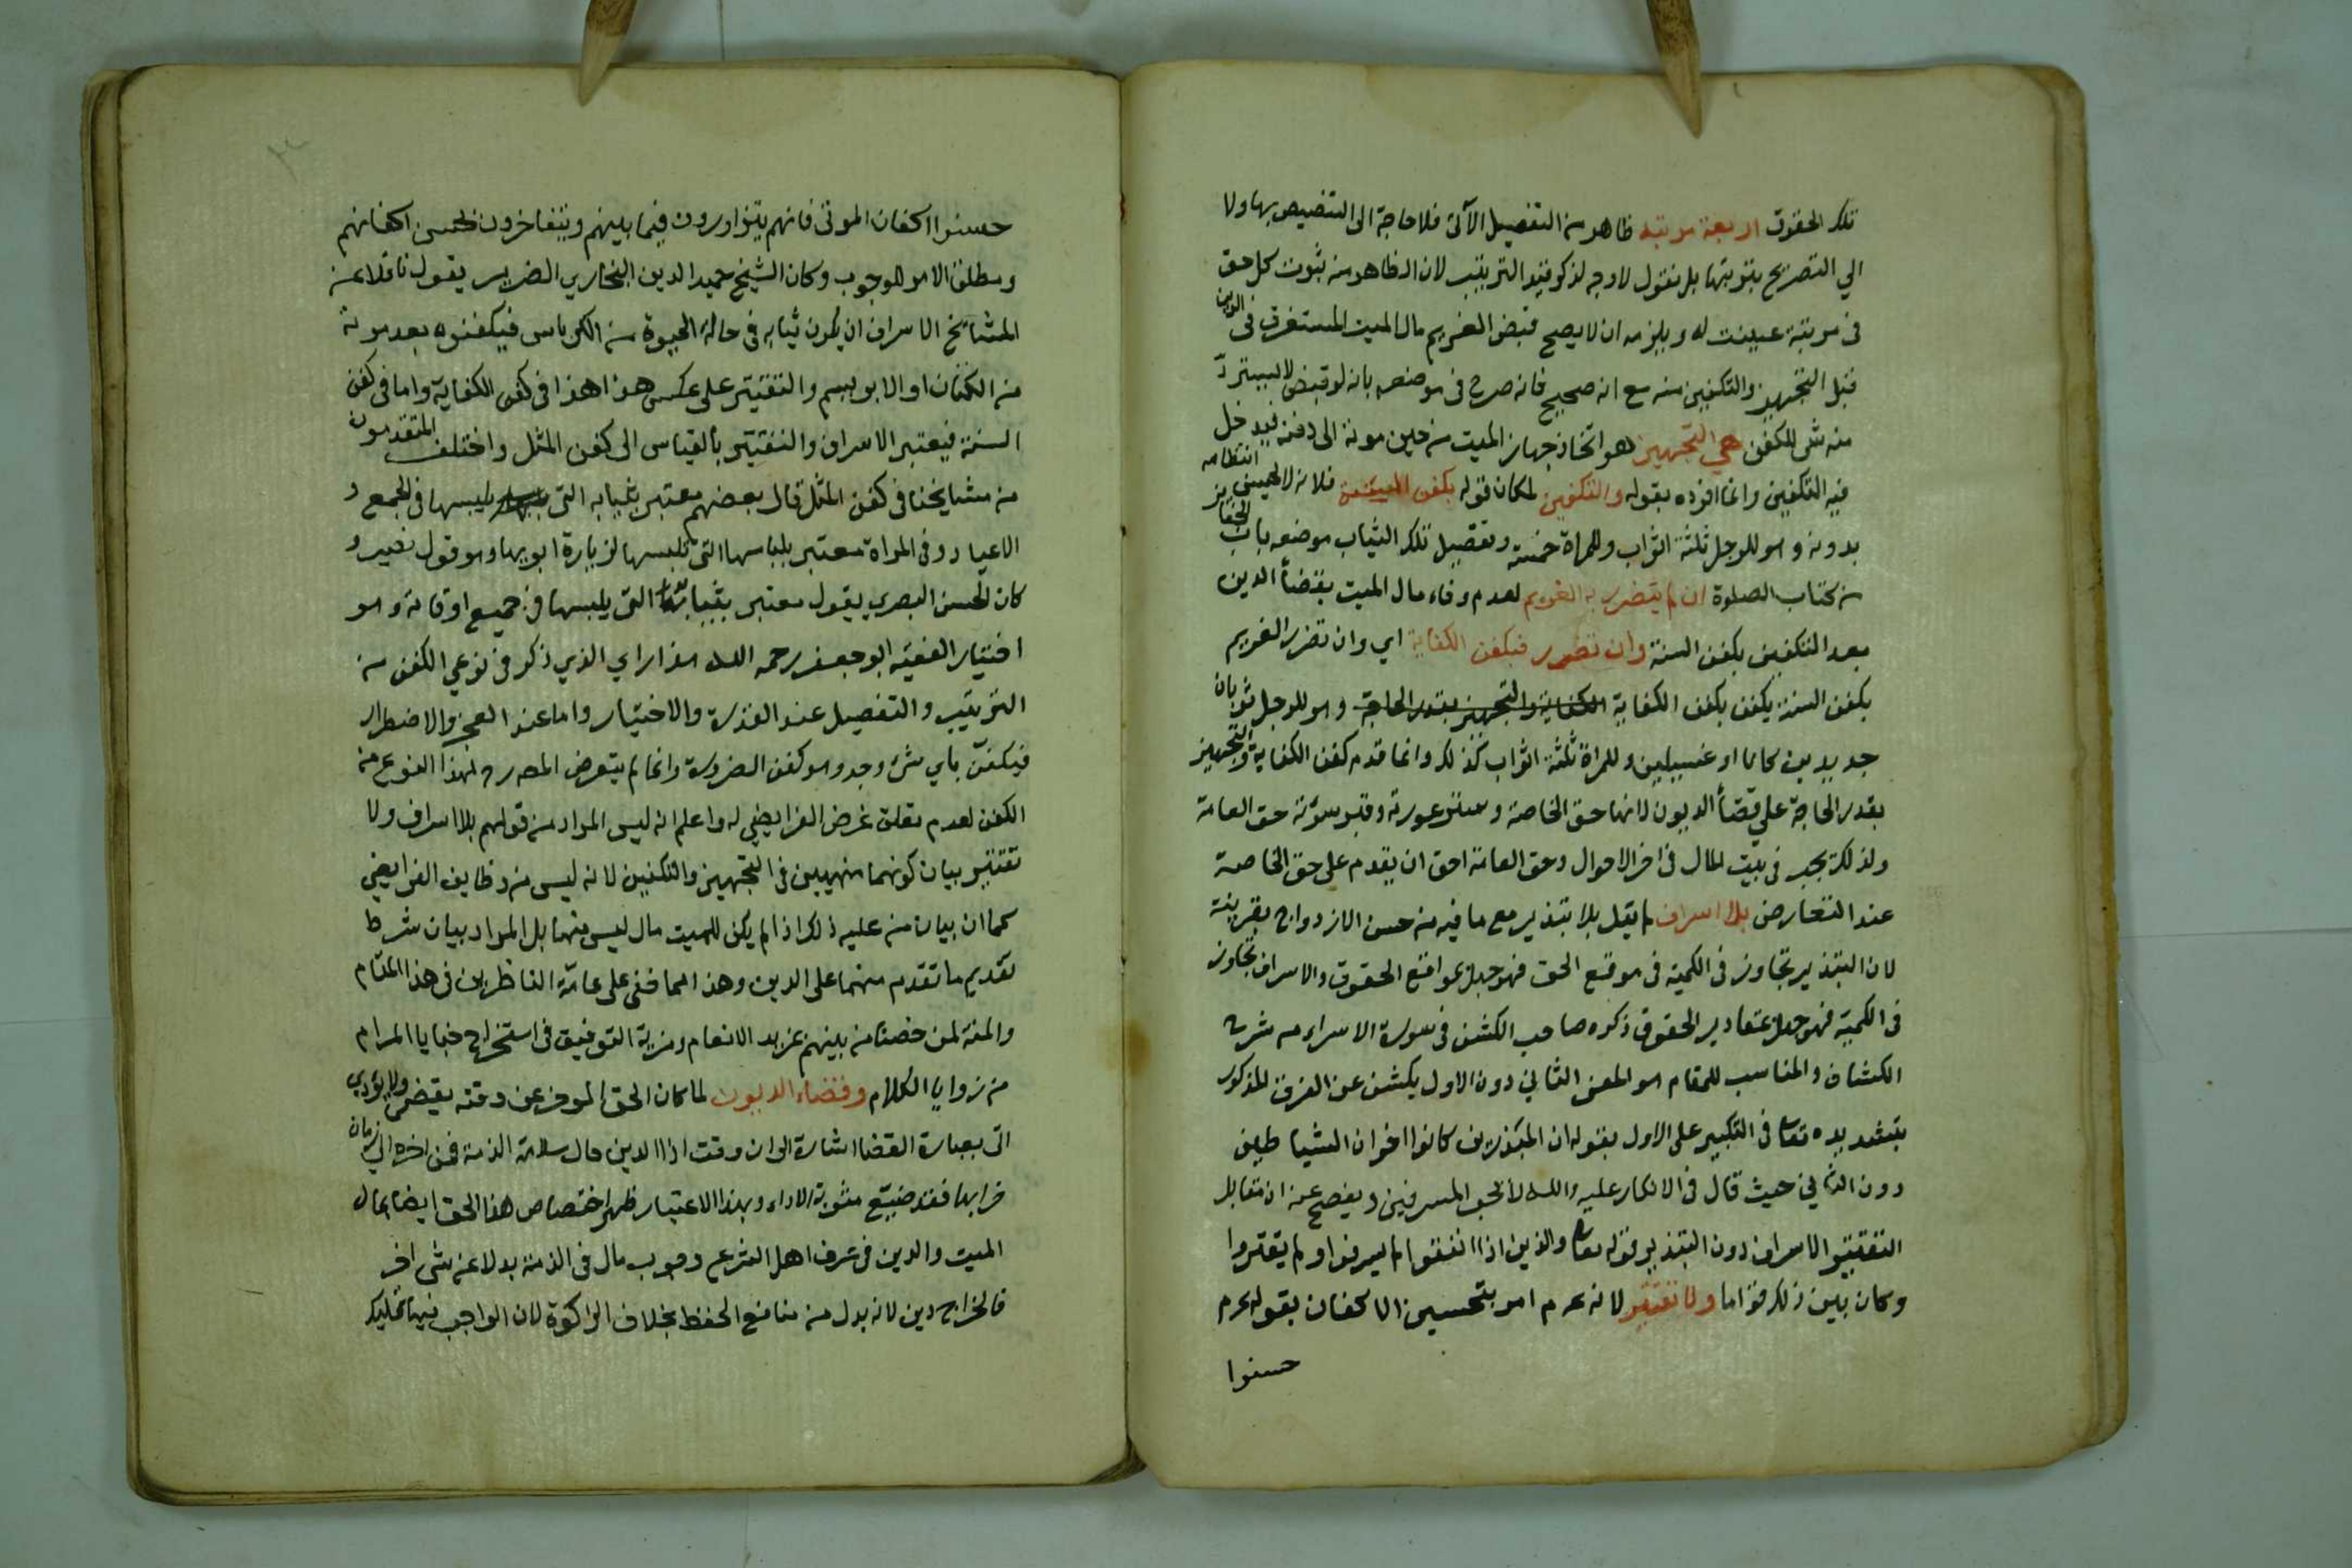 تلك الحقوق اربعة مرتبة ظاهر من التفصيل الآتي فلا حاجة الى التنصيص بها ولا
الي التصريح بترتبها بل نقول لا وجه لذكر قيد الترتيب لان الظاهر منه ثبوت كل حق
في مرتبة عينت له ويلزمه ان لا يصح قبض الغريم مال الميت المستغرق في الدين
قبل التجهيز والتكفين منه مع انه صحيح فانه صرح في موضعه بانه لو قبض لا يسترد
منه شئ للكفن هي التجهيز هو اتخاذ جهاز الميت من حين موته الى دفنه فيدخل
فيه التكفين وانما افرده بقوله والتكفين لمكان قوله بكفن السنة فلانه لا يحسن انتظامه
بدونه وهو للرجل ثلثة اثواب وللمراة خمسة وتفصيل تلك الثياب موضعه باب الجنائز
من كتاب الصلوة ان لم يتضرر به الغريم لعدم وفاء مال الميت بقضاأ الدين
بعد التكفين بكفن السنة وان تضرر فبكفن الكفاية اي وان تضرر الغريم
بكفن السنة يكفن بكفن الكفاية الكفاية والتجهيز بقدر الحاجة وهو للرجل ثوبان
جديدين كانا او غسيلين وللمراة ثلثة اثواب كذلك وانما قدم كفن الكفاية والتجهيز
بقدر الحاجة علي قضاأ الديون لانها حق الخاصة وستر عورته وقبر سوته حق العامة
ولذلك يجب في بيت المال في اخر الاحوال وحق العامة احق ان يقدم على حق الخاصة
عند التعارض بلا اسراف لم يقل بلا تبذير مع ما فيه من حسن الازدواج بقرينة
لان التبذير تجاوز في الكمية في موقع الحق فهو جهل بمواقع الحقوق والاسراف تجاوز
في الكمية فهو جهل بمقادير الحقوق ذكره صاحب الكشف في سورة الاسراء من شرح
الكشاف والمناسب للمقام هو المعنى الثاني دون الاول يكشف عن الفرق المذكور
بتشديده تعا في النكير على الاول بقوله ان المبذرين كانوا اخوان الشياطين
دون الثاني حيث قال في الانكار عليه والله لا يحب المسرفين ويفصح عن ان مقابل
التقتير الاسراف دون التبذير قوله تعا والذين اذا انفقوا لم يسرفوا ولم يقتروا
وكان بين ذلك قواما ولا تقتير لانه عم امر بتحسين الاكفان بقوله عم
حسنوا
حسنوا اكفان الموتى فانهم يتزاورون فيما بينهم ويتفاخرون بحسن اكفانهم
ومطلق الامر للوجوب وكان الشيخ حميد الدين البخاري الضرير يقول ناقلا عن
المشايخ الاسراف ان يكون ثيابه في حالة الحيوة من الكرباس فيكفنوه بعد موته
من الكتان او الابريسم والتقتير على عكس هذا هذا في كفن الكفاية واما في كفن
السنة فيعتبر الاسراف والتقتير بالقياس الى كفن المثل واختلف المتقدمون
من مشايخنا في كفن المثل قال بعضهم معتبر بثيابه التي يلبسها في الجمع و
الاعياد وفي المراة معتبر بلباسها التي تلبسها لزيارة ابويها وهو قول نصير و
كان الحسن البصري يقول معتبر بثيابه التي يلبسها في جميع اوقاته وهو
اختيار الفقيه ابو جعفر رحمه الله هذا راي الذي ذكر في نوعي الكفن من
الترتيب والتفصيل عند القدرة والاختيار واما عند العجز والاضطرار
فيكفن باي شئ وجد وهو كفن الضرورة وانما لم يتعرض المصره لهذا النوع من
الكفن لعدم تعلق غرض الفرايضي له واعلم انه ليس المراد من قولهم بلا اسراف ولا
تقتير بيان كونهما منهيين في التجهيز والتكفين لانه ليس من وظايف الفرايضي
كما ان بيان من عليه ذلك اذا لم يكن للميت مال ليس منها بل المراد بيان شرط
تقديم ما تقدم منهما على الدين وهذا مما خفي على عامة الناظرين في هذا المقام
والمنة لمن خصنا من بينهم بمزيد الانعام ومزية التوفيق في استخراج خبايا المرام
من زوايا الكلام وقضاء الديون لما كان الحق الموخر عن وقته يقضى ولا يؤدي
اتى بعبارة القضا اشارة الى ان وقت اداا الدين حال سلامة الذمة فمن اخره الى زمان
خرابها فقد ضيع مثوبة الاداء وبهذا الاعتبار ظهر اختصاص هذا الحق ايضا بمال
الميت والدين في عرف اهل الشرع وجوب مال في الذمة بدلا عن شئ اخر
فالخراج دين لانه بدل من منافع الحفظ بخلاف الزاكوة لان الواجب فيها تمليك